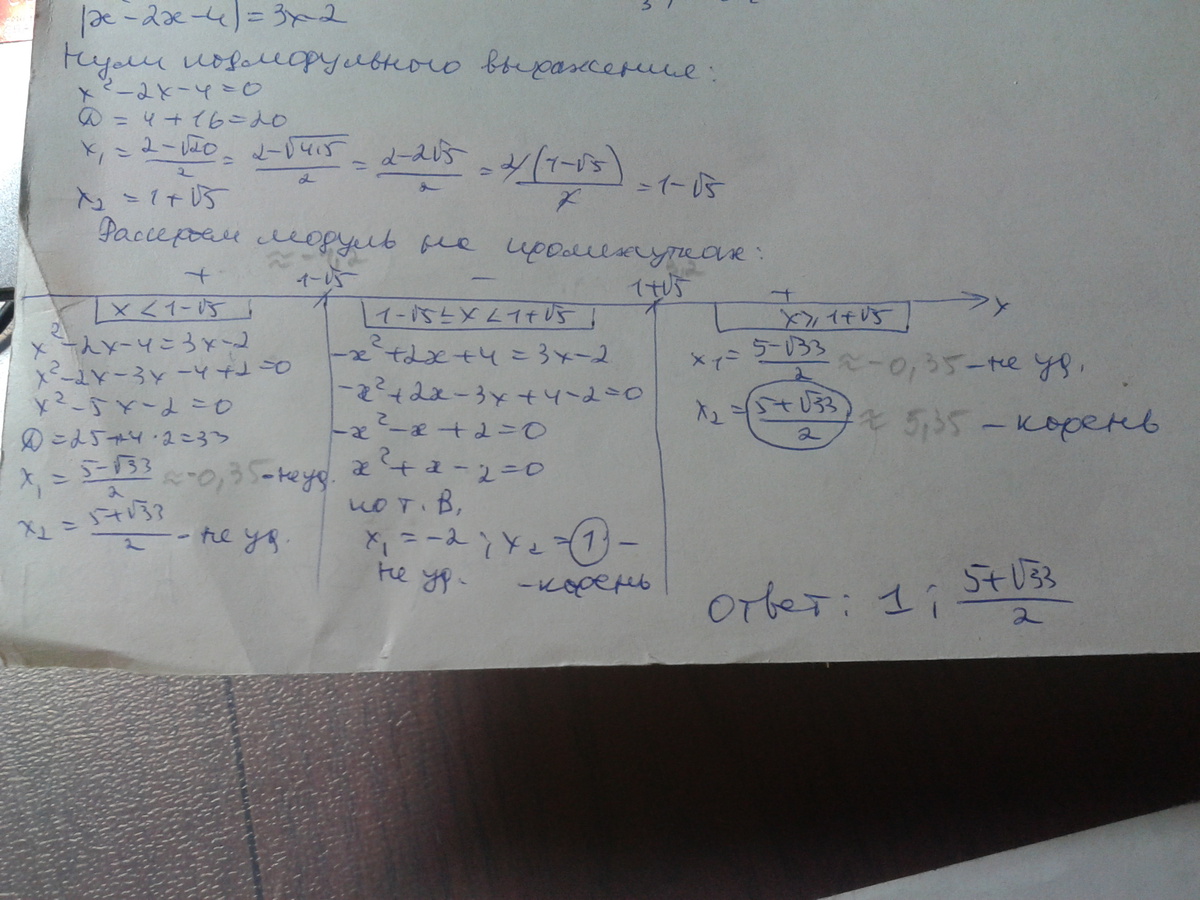 |x² - 2x - 4| = 3x - 2
Нули подмодульного выражения:
x² - 2x - 4 = 0
D = 4 + 16 = 20
x₁ = (2 - √20)/2 = (2 - √4·5)/2 = (2 - 2√5)/2 = 2(1 - √5)/2 = 1 - √5
x₂ = 1 + √5
Раскроем модуль на промежутках:
+ 1-√5 − 1+√5 + x
x < 1-√5
x² - 2x - 4 = 3x - 2
x² - 2x - 3x - 4 + 2 = 0
x² - 5x - 2 = 0
D = 25 + 4·2 = 33
x₁ = (5 - √33)/2 ≈ -0,35 - не уд.
x₂ = (5 + √33)/2 - не уд.
1-√5 ≤ x < 1+√5
-x² + 2x + 4 = 3x - 2
-x² + 2x - 3x + 4 - 2 = 0
-x² - x + 2 = 0
x² + x - 2 = 0
по т. В,
x₁ = -2 ; x₂ = 1 -
не уд. - корень
x ⩾ 1+√5
x₁ = (5 - √33)/2 ≈ -0,35 - не уд.
x₂ = (5 + √33)/2 ≈ 5,35 - корень
Ответ: 1; (5 + √33)/2